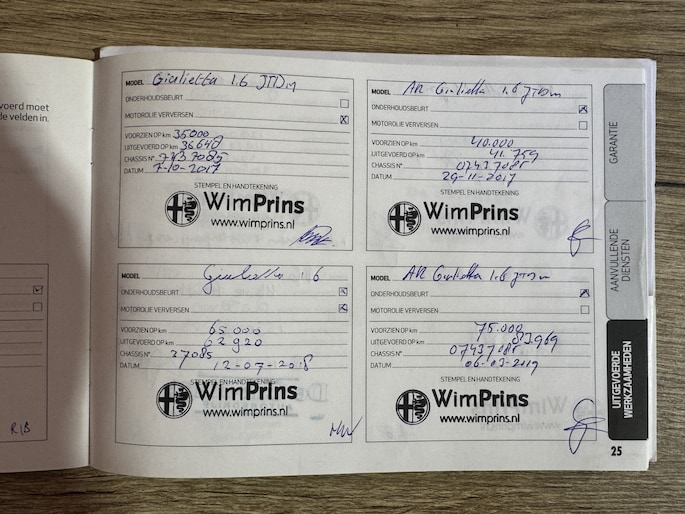 voerd moet
de velden in.
MODEL Giulietta 1.6 JTDm
ONDERHOUDSBEURT
MOTOROLIE VERVERSEN X
VOORZIEN OP km 35000
UITGEVOERD OP km 36648
CHASSIS N°
DATUM 7-10-2017
STEMPEL EN HANDTEKENING
WimPrins
www.wimprins.nl
MODEL AR Giulietta 1.6 JTDm
ONDERHOUDSBEURT X
MOTOROLIE VERVERSEN
VOORZIEN OP km 40.000
UITGEVOERD OP km 41.759
CHASSIS N° 07437085
DATUM 29-11-2017
STEMPEL EN HANDTEKENING
WimPrins
www.wimprins.nl
MODEL Giulietta 1.6
ONDERHOUDSBEURT X
MOTOROLIE VERVERSEN X
VOORZIEN OP km 65000
UITGEVOERD OP km 62920
CHASSIS N° 37085
DATUM 12-07-2018
STEMPEL EN HANDTEKENING
WimPrins
www.wimprins.nl
MODEL AR Giulietta 1.6 JTDm
ONDERHOUDSBEURT X
MOTOROLIE VERVERSEN
VOORZIEN OP km 75.000
UITGEVOERD OP km 83969
CHASSIS N° 07437085
DATUM 06-03-2019
STEMPEL EN HANDTEKENING
WimPrins
www.wimprins.nl
R/B
GARANTIE
AANVULLENDE
DIENSTEN
UITGEVOERDE
WERKZAAMHEDEN
25